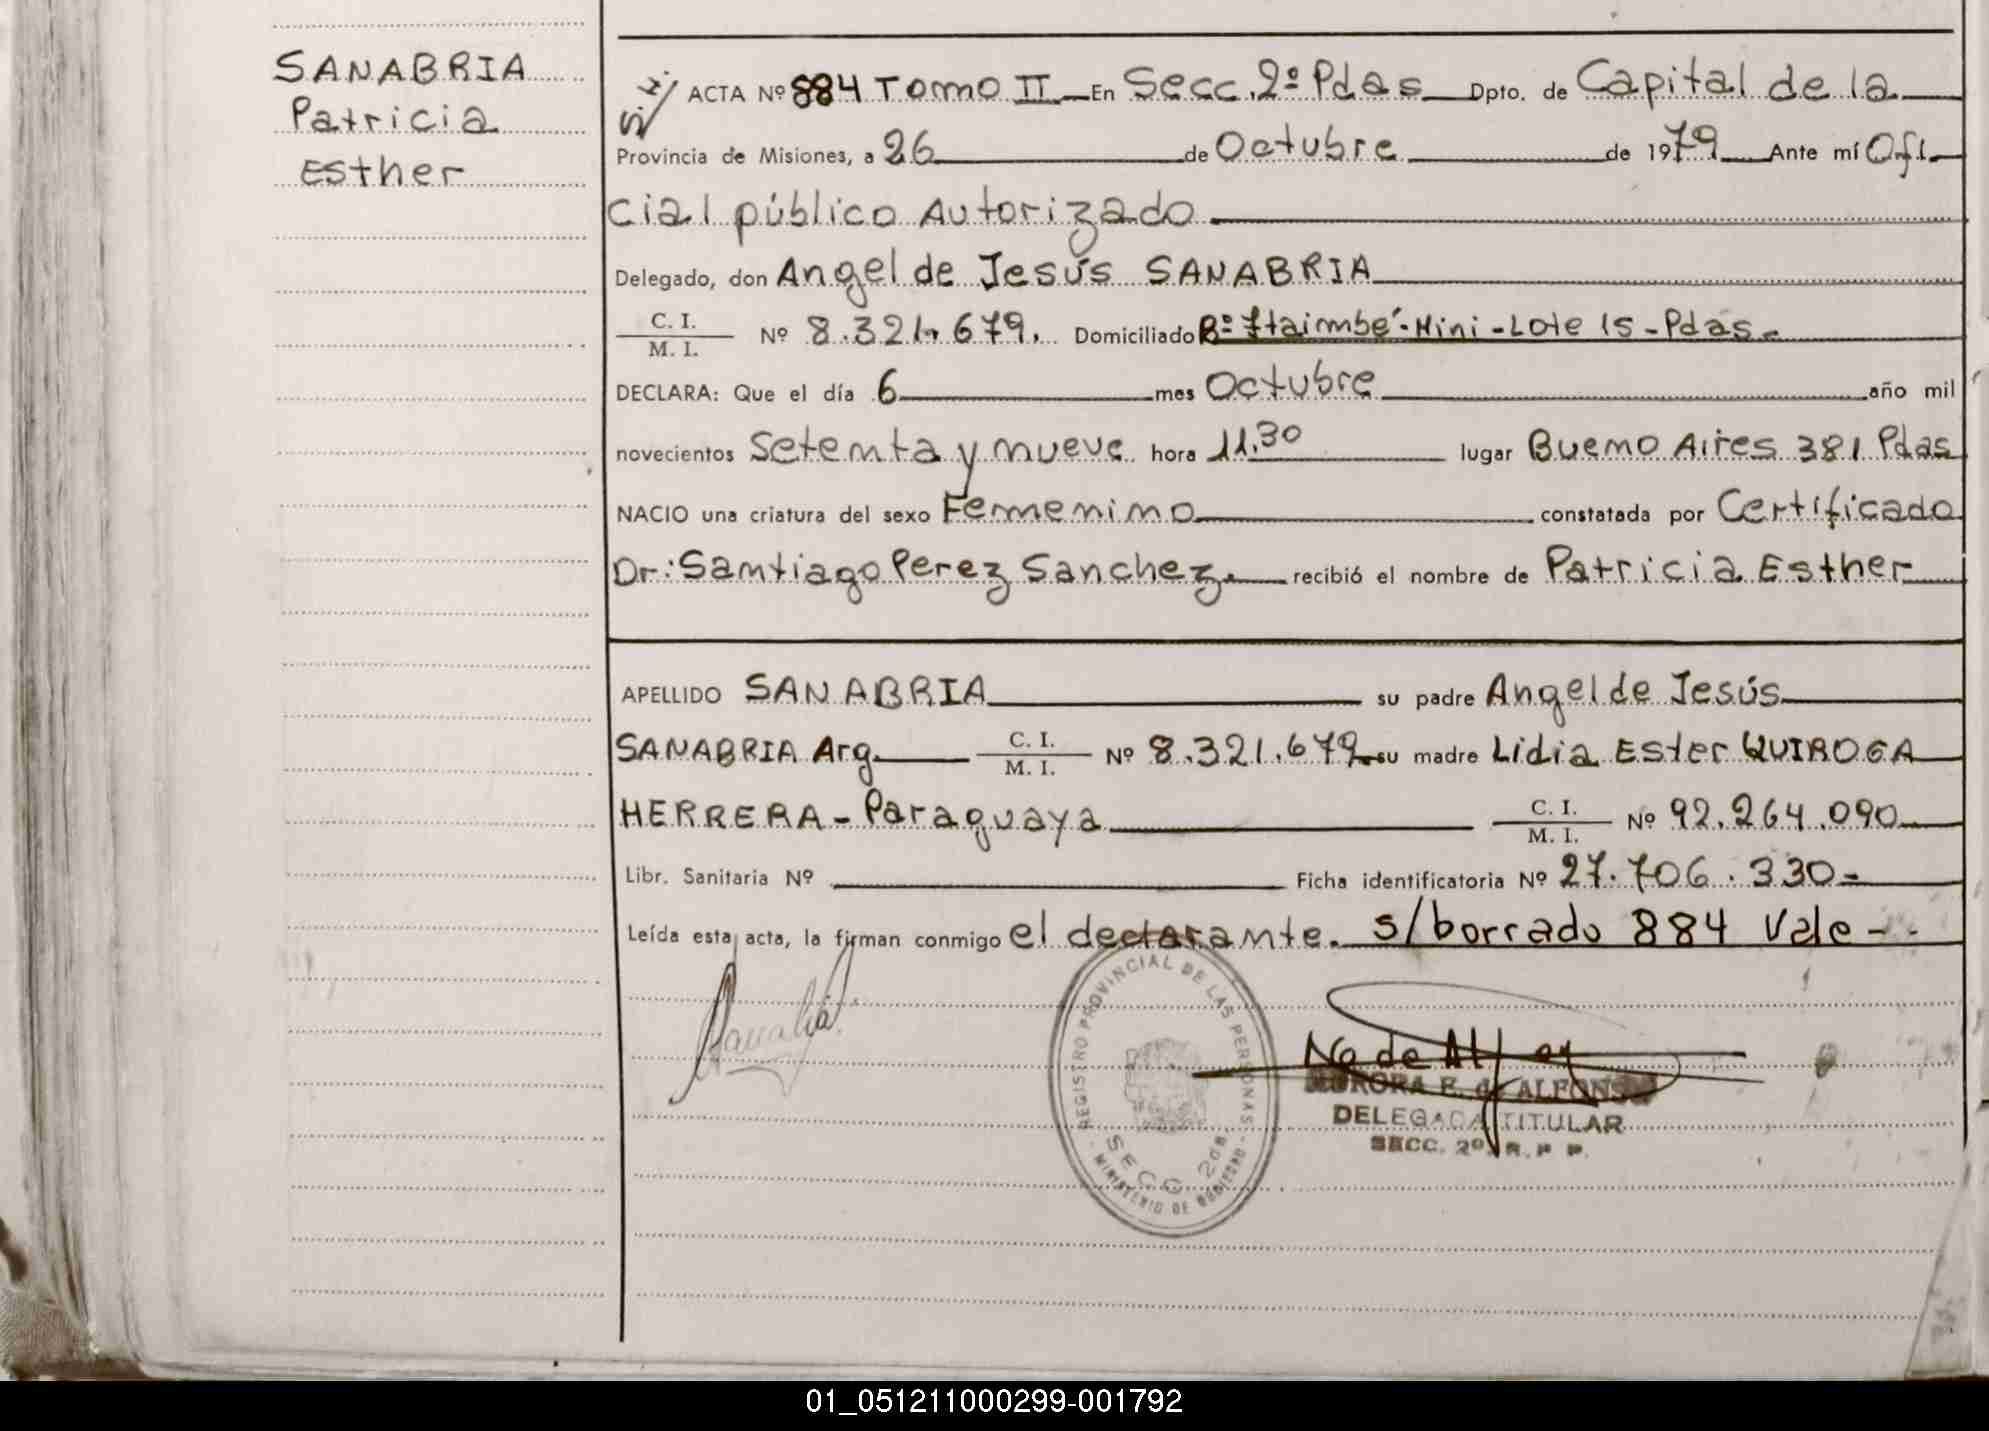 SANABRIA
Patricia
Esther
ACTA Nº 884 Tomo II En Secc. 2º Pdas Dpto. de Capital de la
Provincia de Misiones, a 26 de Octubre de 1979 Ante mí Ofi-
cial público Autorizado
Delegado, don Angel de Jesús SANABRIA
C. I.
M. I. Nº 8.321.679. Domiciliado Bº Itaimbé-Mini-Lote 15-Pdas-
DECLARA: Que el día 6 mes Octubre año mil
novecientos setenta y nueve hora 11.30 lugar Bueno Aires 381 Pdas
NACIO una criatura del sexo Femenino constatada por Certificado
Dr: Santiago Perez Sanchez. recibió el nombre de Patricia Esther
APELLIDO SANABRIA su padre Angel de Jesús
SANABRIA Arg. C. I.
M. I. Nº 8.321.679 su madre Lidia Ester QUIROGA
HERRERA - Paraguaya C. I.
M. I. Nº 92.264.090
Libr. Sanitaria Nº Ficha identificatoria Nº 27.706.330-
Leída esta acta, la firman conmigo el declarante. s/borrado 884 Vale--
REGISTRO PROVINCIAL DE LAS PERSONAS
SECC. 2da.
MINISTERIO DE GOBIERNO
AURORA E. de ALFONSO
DELEGADA TITULAR
SECC. 2º R. P P.
01_051211000299-001792